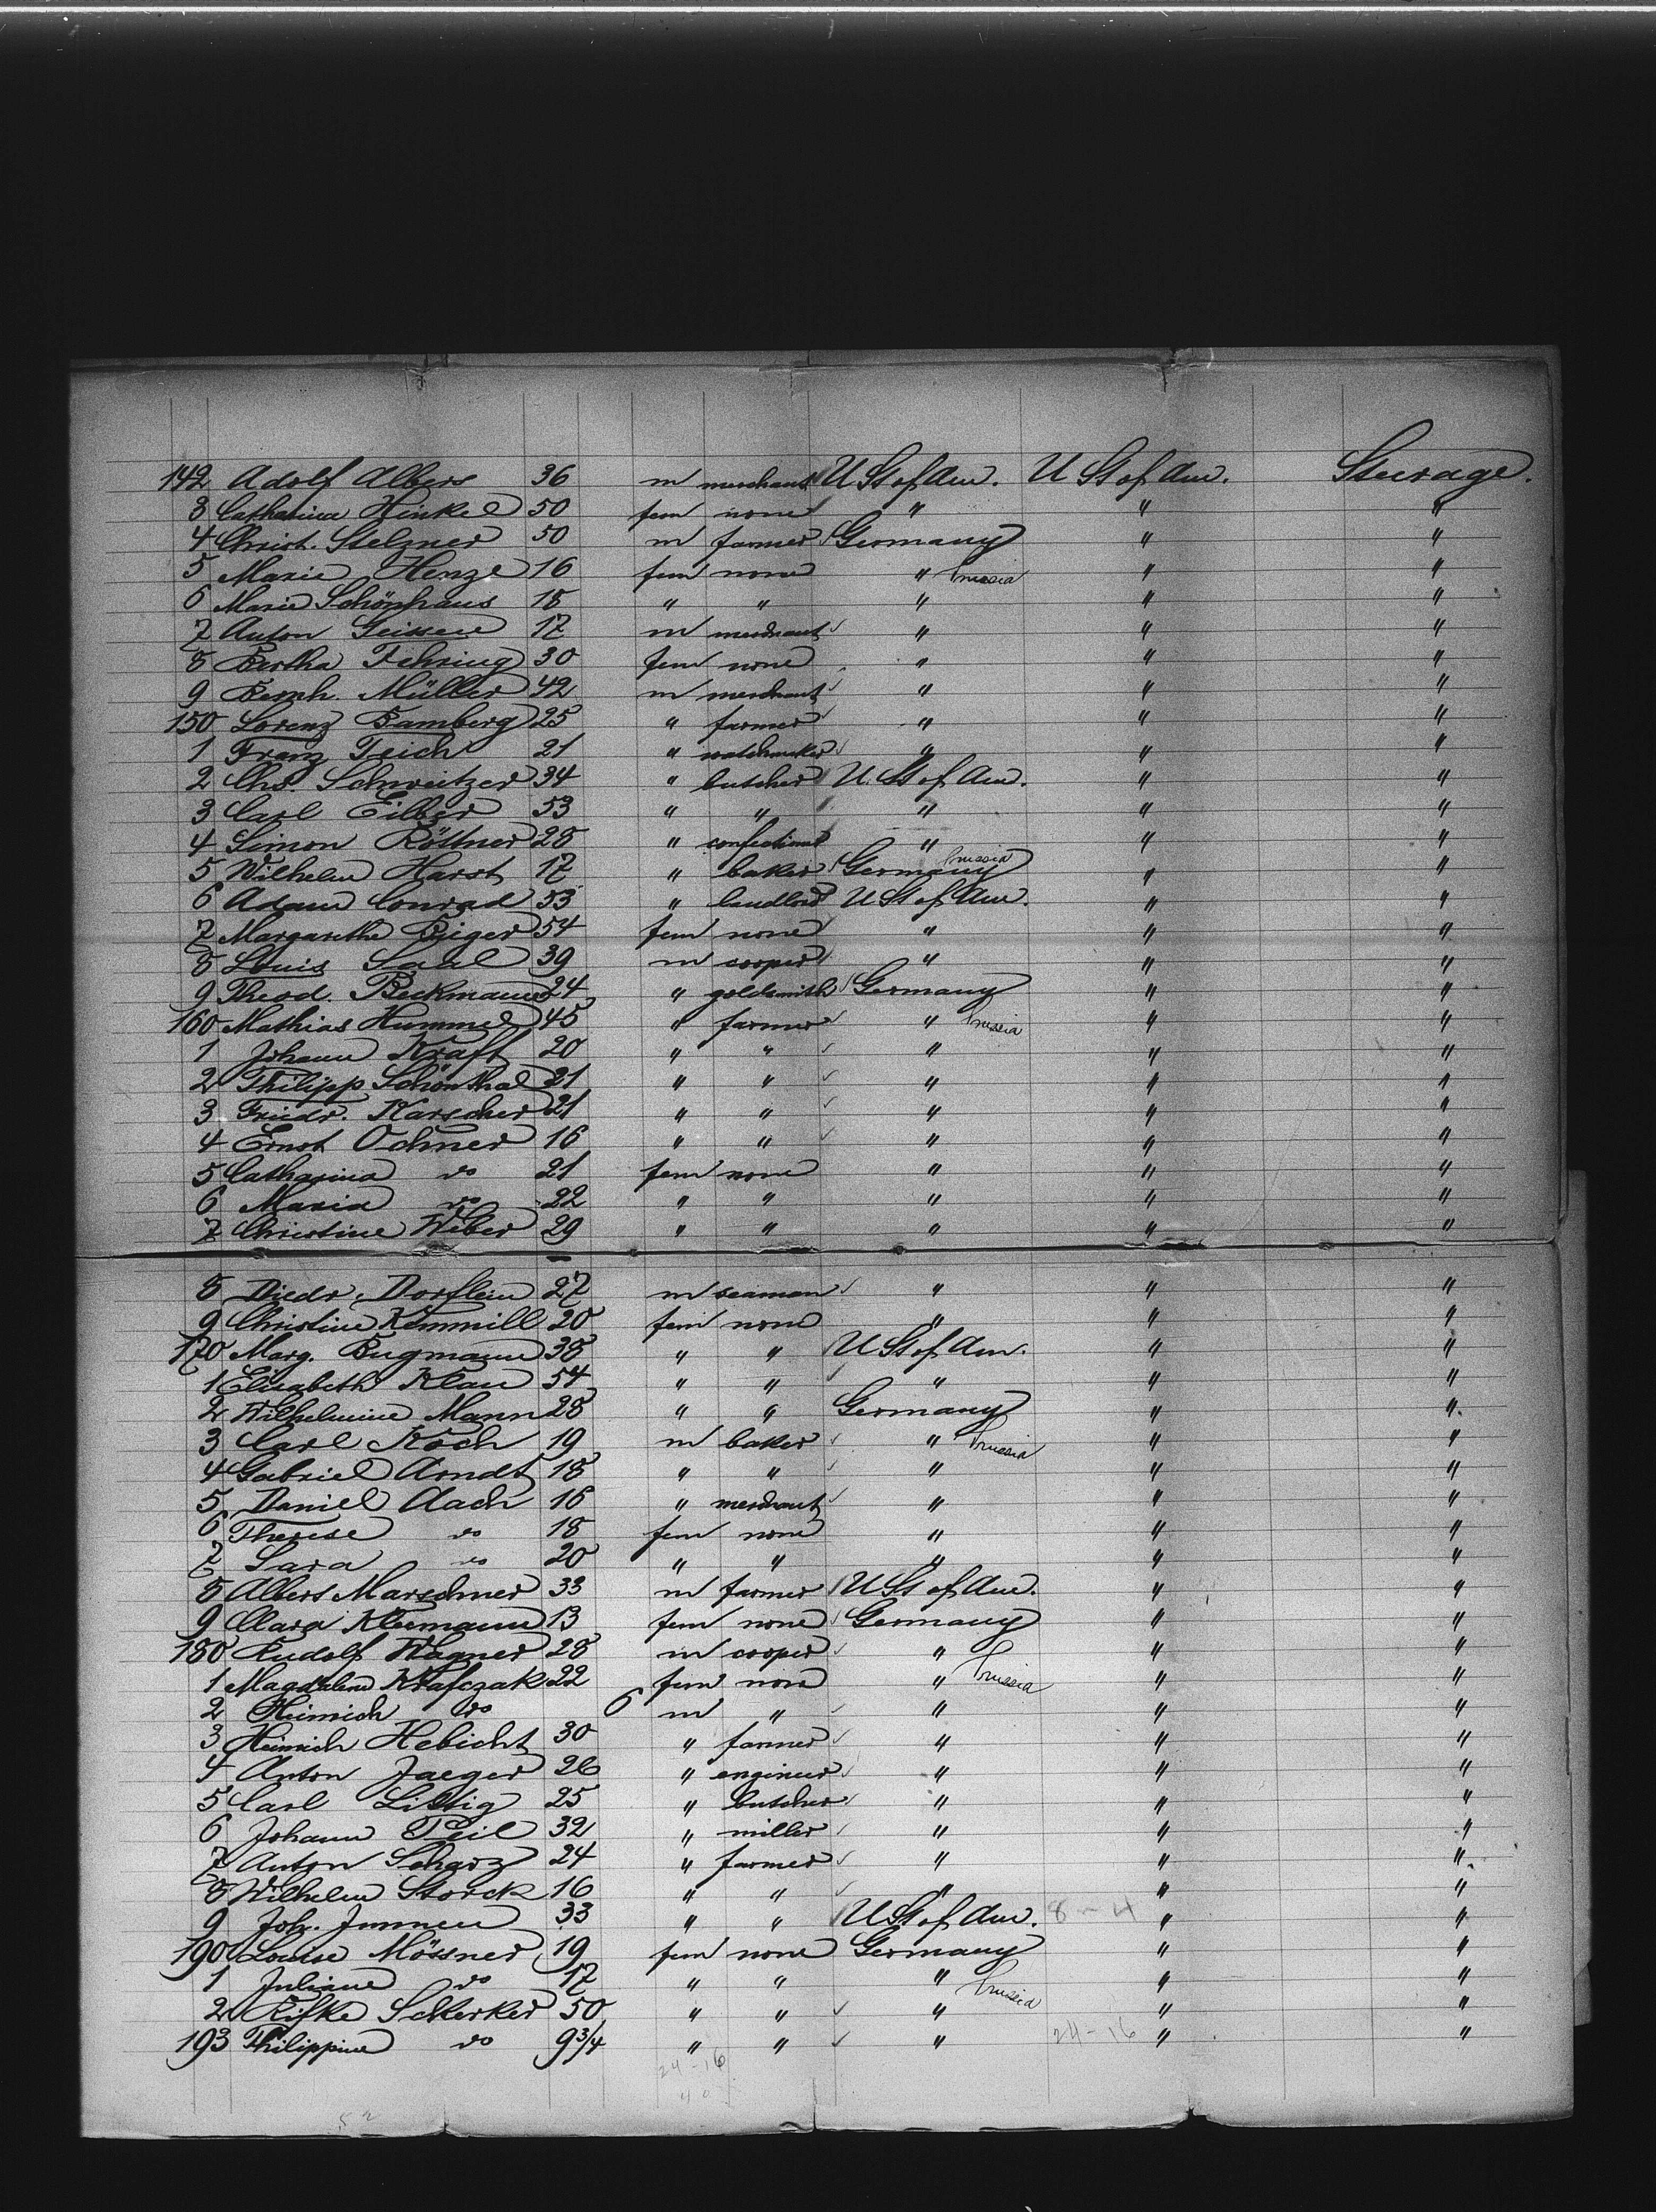 142 Adolf Albers 36 m merchant U St of Am. U St of Am. Steerage.
3 Catharina Hinkel 50 fem none " " "
4 Christ. Stelzner 50 m farmer Germany " "
5 Marie Henze 16 fem none " Prussia " "
6 Marie Schönhaus 18 " " " " "
7 Anton 17 m merchant " " "
8 Bertha Fehring 30 fem none " " "
9 Bernh. Müller 42 m merchant " " "
150 Lorenz Bamberg 25 " farmer " " "
1 Franz Teich 21 " watchmaker " " "
2 Chs. Schweitzer 34 " butcher U. St of Am. " "
3 Carl Eilber 53 " " " " "
4 Simon Röstner 28 " " " "
5 Wilhelm Harst 17 " baker Germany Prussia " "
6 Adam Conrad 53 " landlord U St of Am. " "
7 Margarethe 54 fem none " " "
8 Louis Saal 39 m cooper " " "
9 Theod. Beckmann 24 " goldsmith Germany " "
160 Mathias Hummel 45 " farmer " Prussia " "
1 Johann Kraft 20 " " " " "
2 Philipp Schönthal 21 " " " " "
3 Friedr. Karscher 21 " " " " "
4 Ernst Ochner 16 " " " " "
5 Catharina do 21 fem none " " "
6 Maria do 22 " " " " "
7 Christine Weber 29 " " " " "
8 Diedr. Dorflein 27 m seaman " " "
9 Christine Kemmill 20 fem none " " "
170 Marg. Bugmann 38 " " U St of Am. " "
1 Elisabeth Klau 54 " " " " "
2 Wilhelmine Mann 28 " " Germany " "
3 Carl Koch 19 m baker " Prussia " "
4 Gabriel Arndt 18 " " " " "
5 Daniel Aach 16 " merchant " " "
6 Therese do 18 fem none " " "
7 Sara do 20 " " " " "
8 Albert Marschner 33 m farmer U St of Am. " "
9 Clara Kleemann 13 fem none Germany " "
180 Rudolf Wagner 28 m cooper " " "
1 Magdalena Krafczak 22 fem none " Prussia " "
2 Heinrich do 6 m " " " "
3 Heinrich Hebicht 30 " farmer " " "
4 Anton Jaeger 26 " engineer " " "
5 Carl Littig 25 " butcher " " "
6 Johann Teil 32 " miller " " "
7 Anton Scharz 24 " farmer " " "
8 Wilhelm Storck 16 " " " " "
9 Joh. Immen 33 " " U St of Am. 8-4 " "
190 Louise Mössner 19 fem none Germany " "
1 Juliane do 17 " " " Prussia " "
2 Rifke Scherker 50 " " " " "
193 Philippine do 9 3/4 " " " 24-16 " "
24-16
40
52